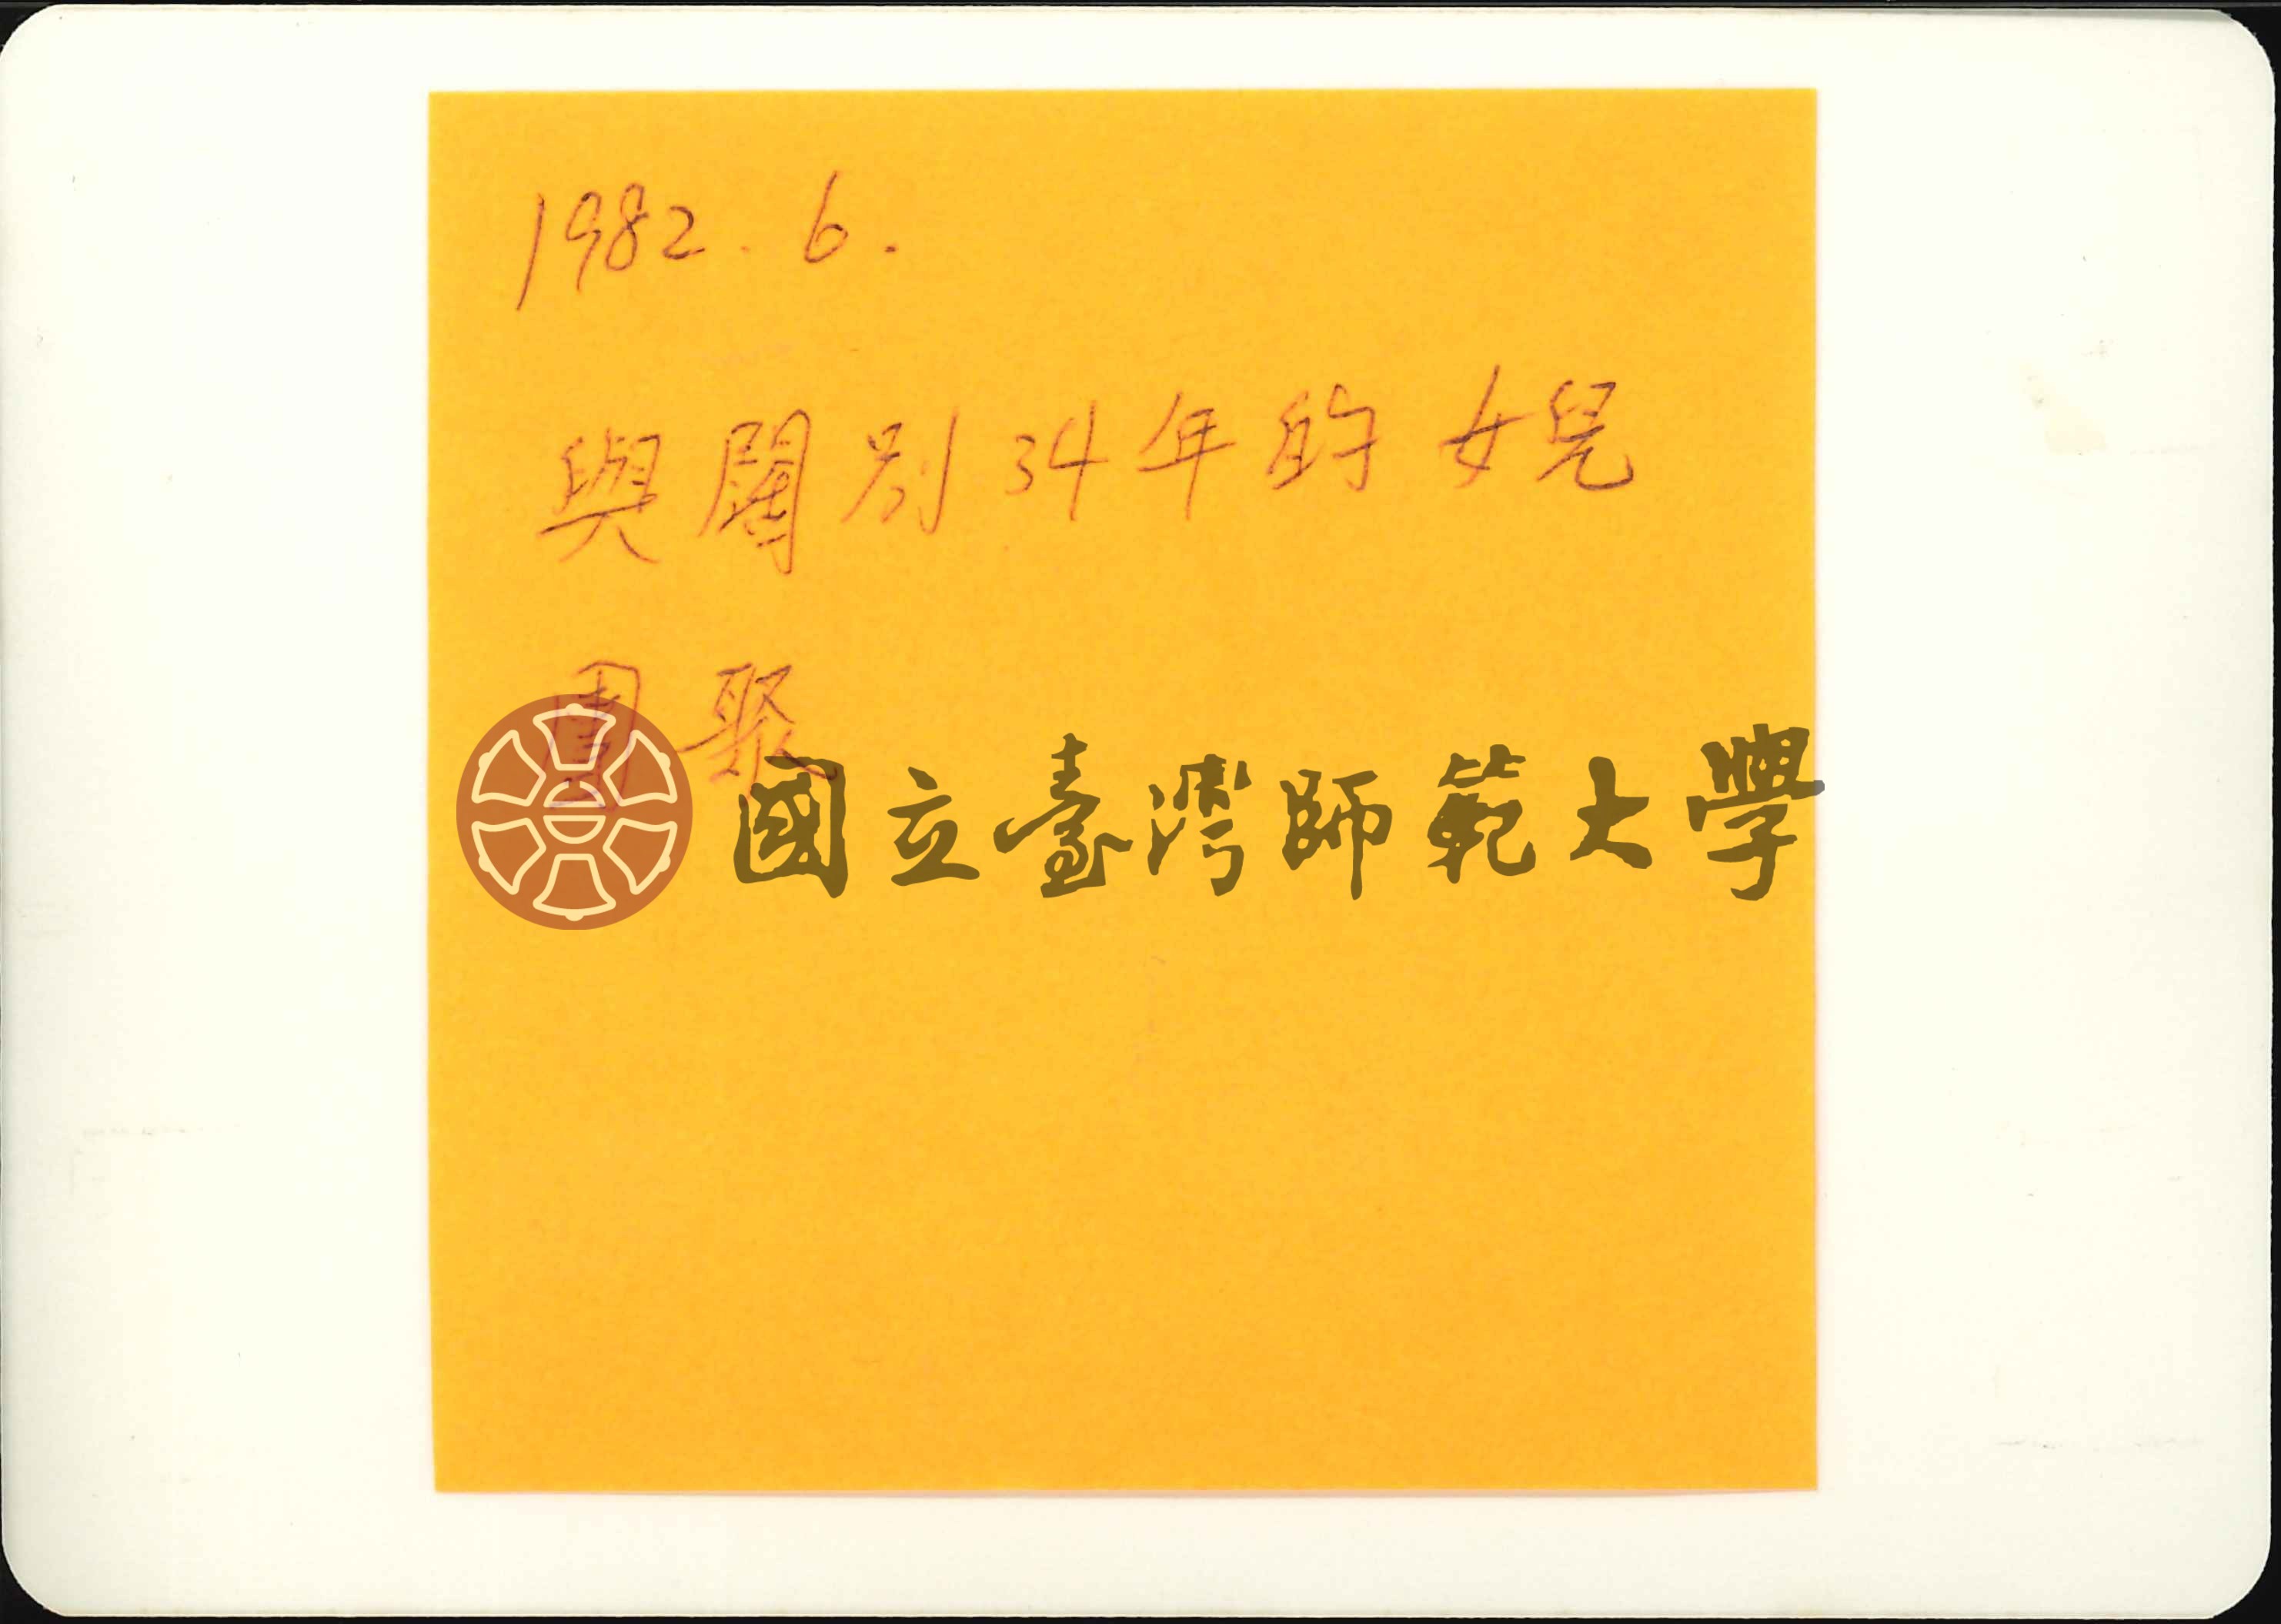 1982.6.
與闊別34年的女兒
團聚
國立臺灣師範大學